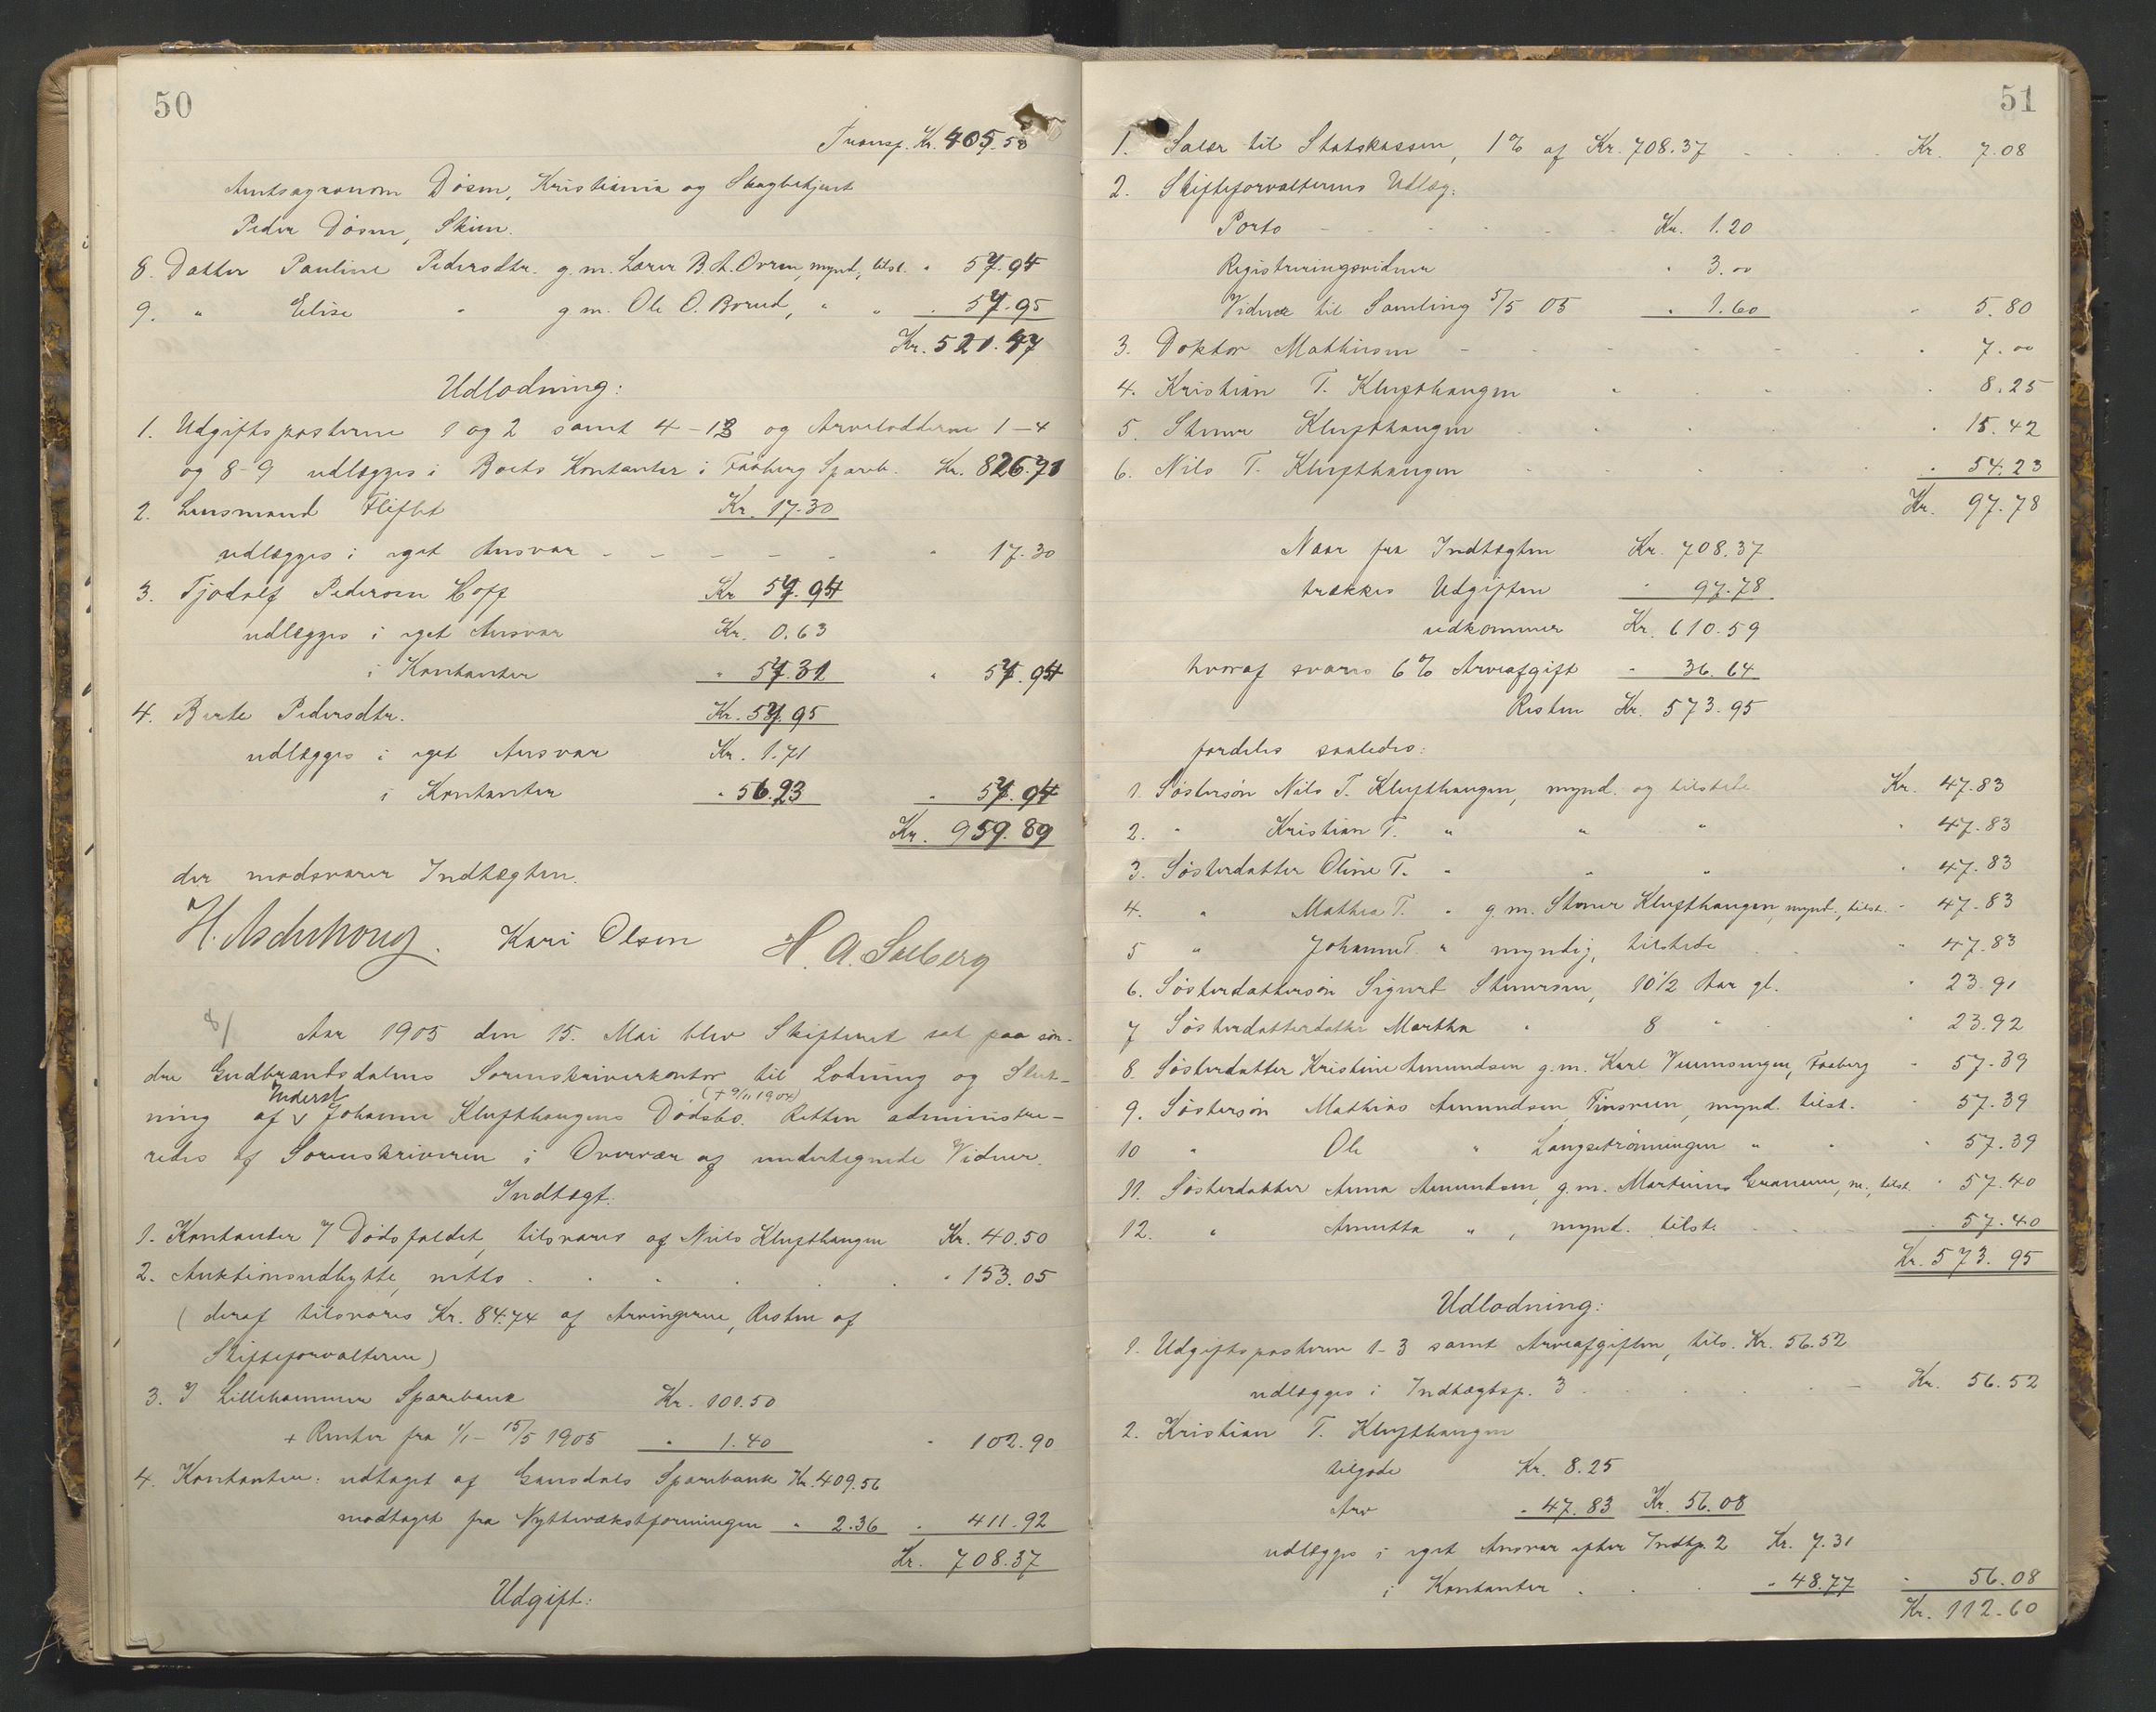 50
Transp. Kr. 405.58
Amtsagronom Døsen, Kristiania og Skogbetjent
Peder Døsen, Skien.
8. Datter Pauline Pedersdtr. g.m. Lærer B. A. Ovren, mynd., tilst. " 57.94
9. " Elise " g m. Ole O. Borud, " " " 57.95
Kr. 521.47
Udlodning:
1. Udgiftsposterne 1 og 2 samt 4-13 og Arvelodderne 1-4
og 8-9 udlægges i Boets Kontanter i Faaberg Spareb. Kr. 826.71
2. Lensmand Fliflet Kr. 17.30
udlægges i eget Ansvar - - - - - " 17.30
3. Tjodolf Pedersen Hoff Kr 57.94
udlægges i eget Ansvar Kr. 0.63
i Kontanter " 57.31 " 57.94
4. Berte Pedersdtr. Kr. 57.95
udlægges i eget Ansvar Kr. 1.71
i Kontanter " 56.23 " 57.94
Kr. 959.89
der modsvarer Indtægten.
H. Aschehoug. Kari Olsen H. A. Solberg
8/ Aar 1905 den 15. Mai blev Skifteret sat paa søn-
dre Gudbrandsdalens Sorenskriverkontor til Lodning og Slut-
Inderst (+ 9/11 1904)
ning af v Johanne Klufthaugens Dødsbo. Retten administre-
redes af Sorenskriveren i Overvær af undertegnede Vidner.
Indtægt:
1. Kontanter v/ Dødsfaldet, tilsvares af Nils Klufthaugen Kr. 40.50
2. Auktionsudbytte, netto . . . . . " 153.05
(deraf tilsvares Kr. 84.74 af Arvingerne, Resten af
Skifteforvalteren)
3. I Lillehammer Sparebank Kr. 101.50
+ Renter fra 1/1 - 15/5 1905 " 1.40 " 102.90
4. Kontanter: udtaget af Gausdals Sparebank Kr. 409.56
modtaget fra Nyttevækstforeningen " 2.36 " 411.92
Kr. 708.37
Udgift:
51
1. Salær til Statskassen, 1% af Kr. 708.37 - . . . Kr. 7.08
2. Skifteforvalterens Udlæg:
Porto - - - - - Kr. 1.20
Registreringsvidner " 3.00
Vidner til Samling 5/5 05 " 1.60 " 5.80
3. Doktor Mathiesen - - - - - " 7.00
4. Kristian T. Klufthaugen " 8.25
5. Stener Klufthaugen " 15.42
6. Nils T. Klufthaugen " 54.23
Kr. 97.78
Naar fra Indtægten Kr. 708.37
trækkes Udgiften " 97.78
udkommer Kr. 610.59
hvoraf svares 6% Arveafgift " 36.64
Resten Kr. 573.95
fordeles saaledes:
1. Søstersøn Nils T. Klufthaugen, mynd. og tilstede Kr. 47.83
2. " Kristian T. " " " " 47.83
3. Søsterdatter Oline T. " " " " 47.83
4. " Mathea T. " g.m. Stener Klufthaugen, mynd., tilst. " 47.83
5 " Johanne T. " myndig, tilstede " 47.83
6. Søsterdattersøn Sigurd Stenersen, 10 1/2 Aar gl. " 23.91
7 Søsterdatterdatter Martha " 8 " " 23.92
8. Søsterdatter Kristine Amundsen g.m. Karl Veumsengen, Faaberg " 57.39
9. Søstersøn Mathias Amundsen Finsveen, mynd. tilst. " 57.39
10 " Ole " Langseterønningen " " " 57.39
11. Søsterdatter Anna Amundsen, g.m. Martinus Granerne, m., tilst. " 57.40
12. " Annette " , mynd. tilst. " 57.40
Kr. 573.95
Udlodning:
1. Udgiftsposterne 1-3 samt Arveafgiften, tils. Kr. 56.52
udlægges i Indtægtsp. 3 . . . . - Kr. 56.52
2. Kristian T. Klufthaugen
tilgode Kr. 8.25
Arv " 47.83 Kr. 56.08
udlægges i eget Ansvar efter Indtp. 2 Kr. 7.31
i Kontanter . . . " 48.77 " 56.08
Kr. 112.60